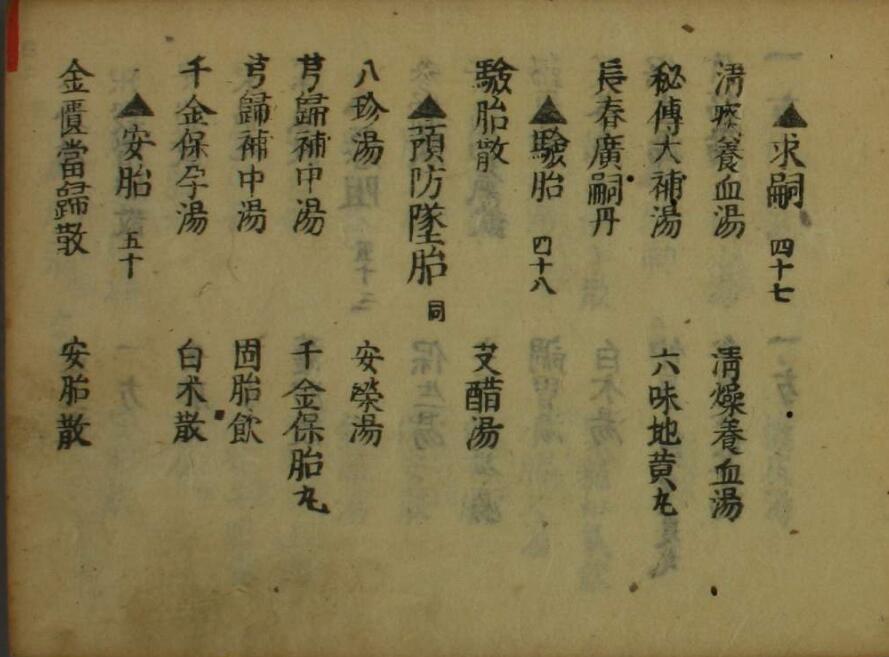 ▲求嗣 四十七
淸痰養血湯 淸燥養血湯
秘傳大補湯 六味地黃丸
長春廣嗣丹
▲驗胎 四十八
驗胎散 艾醋湯
▲預防墜胎 同
八珍湯 安榮湯
芎歸補中湯 千金保胎丸
芎歸補中湯 固胎飮
千金保孕湯 白朮散
▲安胎 五十
金匱當歸散 安胎散